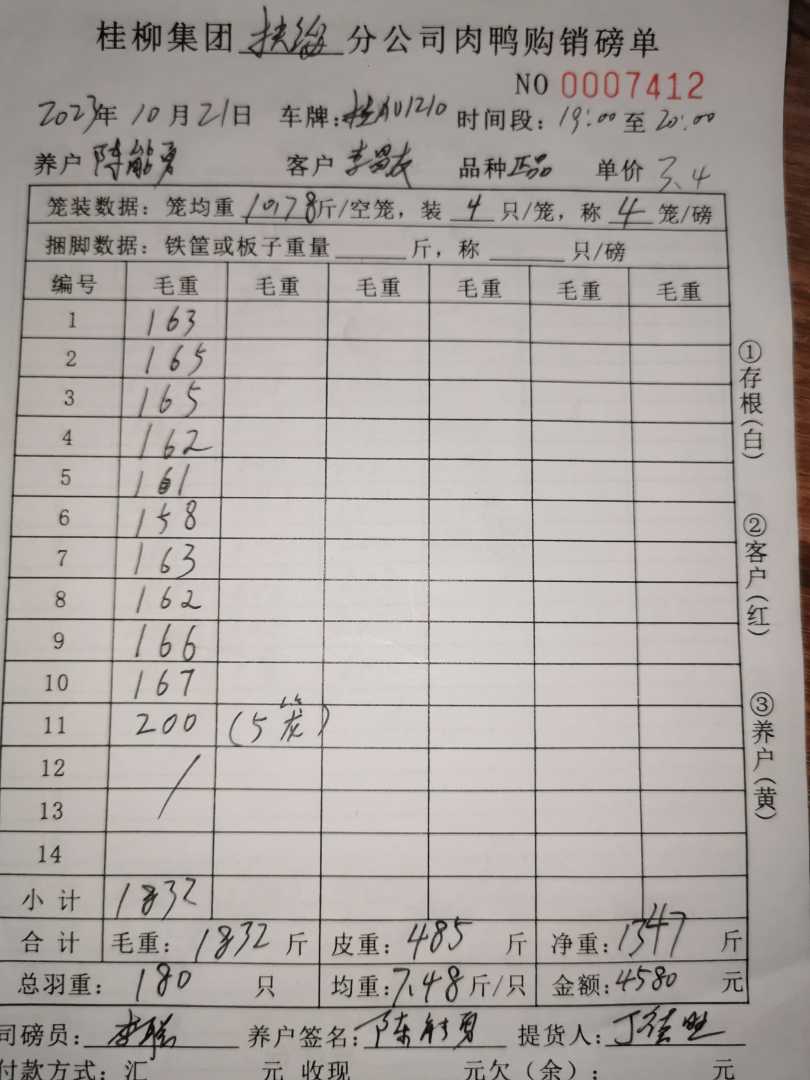 桂柳集团扶绥分公司肉鸭购销磅单
NO 0007412
2023年 10月21日 车牌:桂AU1210 时间段:19:00至20:00
养户 陈能勇 客户 李昌友 品种 正品 单价 3.4
笼装数据:笼均重 10.78斤/空笼,装 4 只/笼,称 4 笼/磅
捆脚数据:铁筐或板子重量______斤,称______只/磅
编号 毛重 毛重 毛重 毛重 毛重 毛重
1 163
2 165
3 165
4 162
5 161
6 158
7 163
8 162
9 166
10 167
11 200 (5笼)
12
13
14
小计 1832
合计 毛重:1832斤 皮重:485斤 净重:1347斤
总羽重:180只 均重:7.48斤/只 金额:4580元
司磅员: 养户签名:陈能勇 提货人:
付款方式:汇 元 收现 元欠(余): 元
①存根(白)
②客户(红)
③养户(黄)